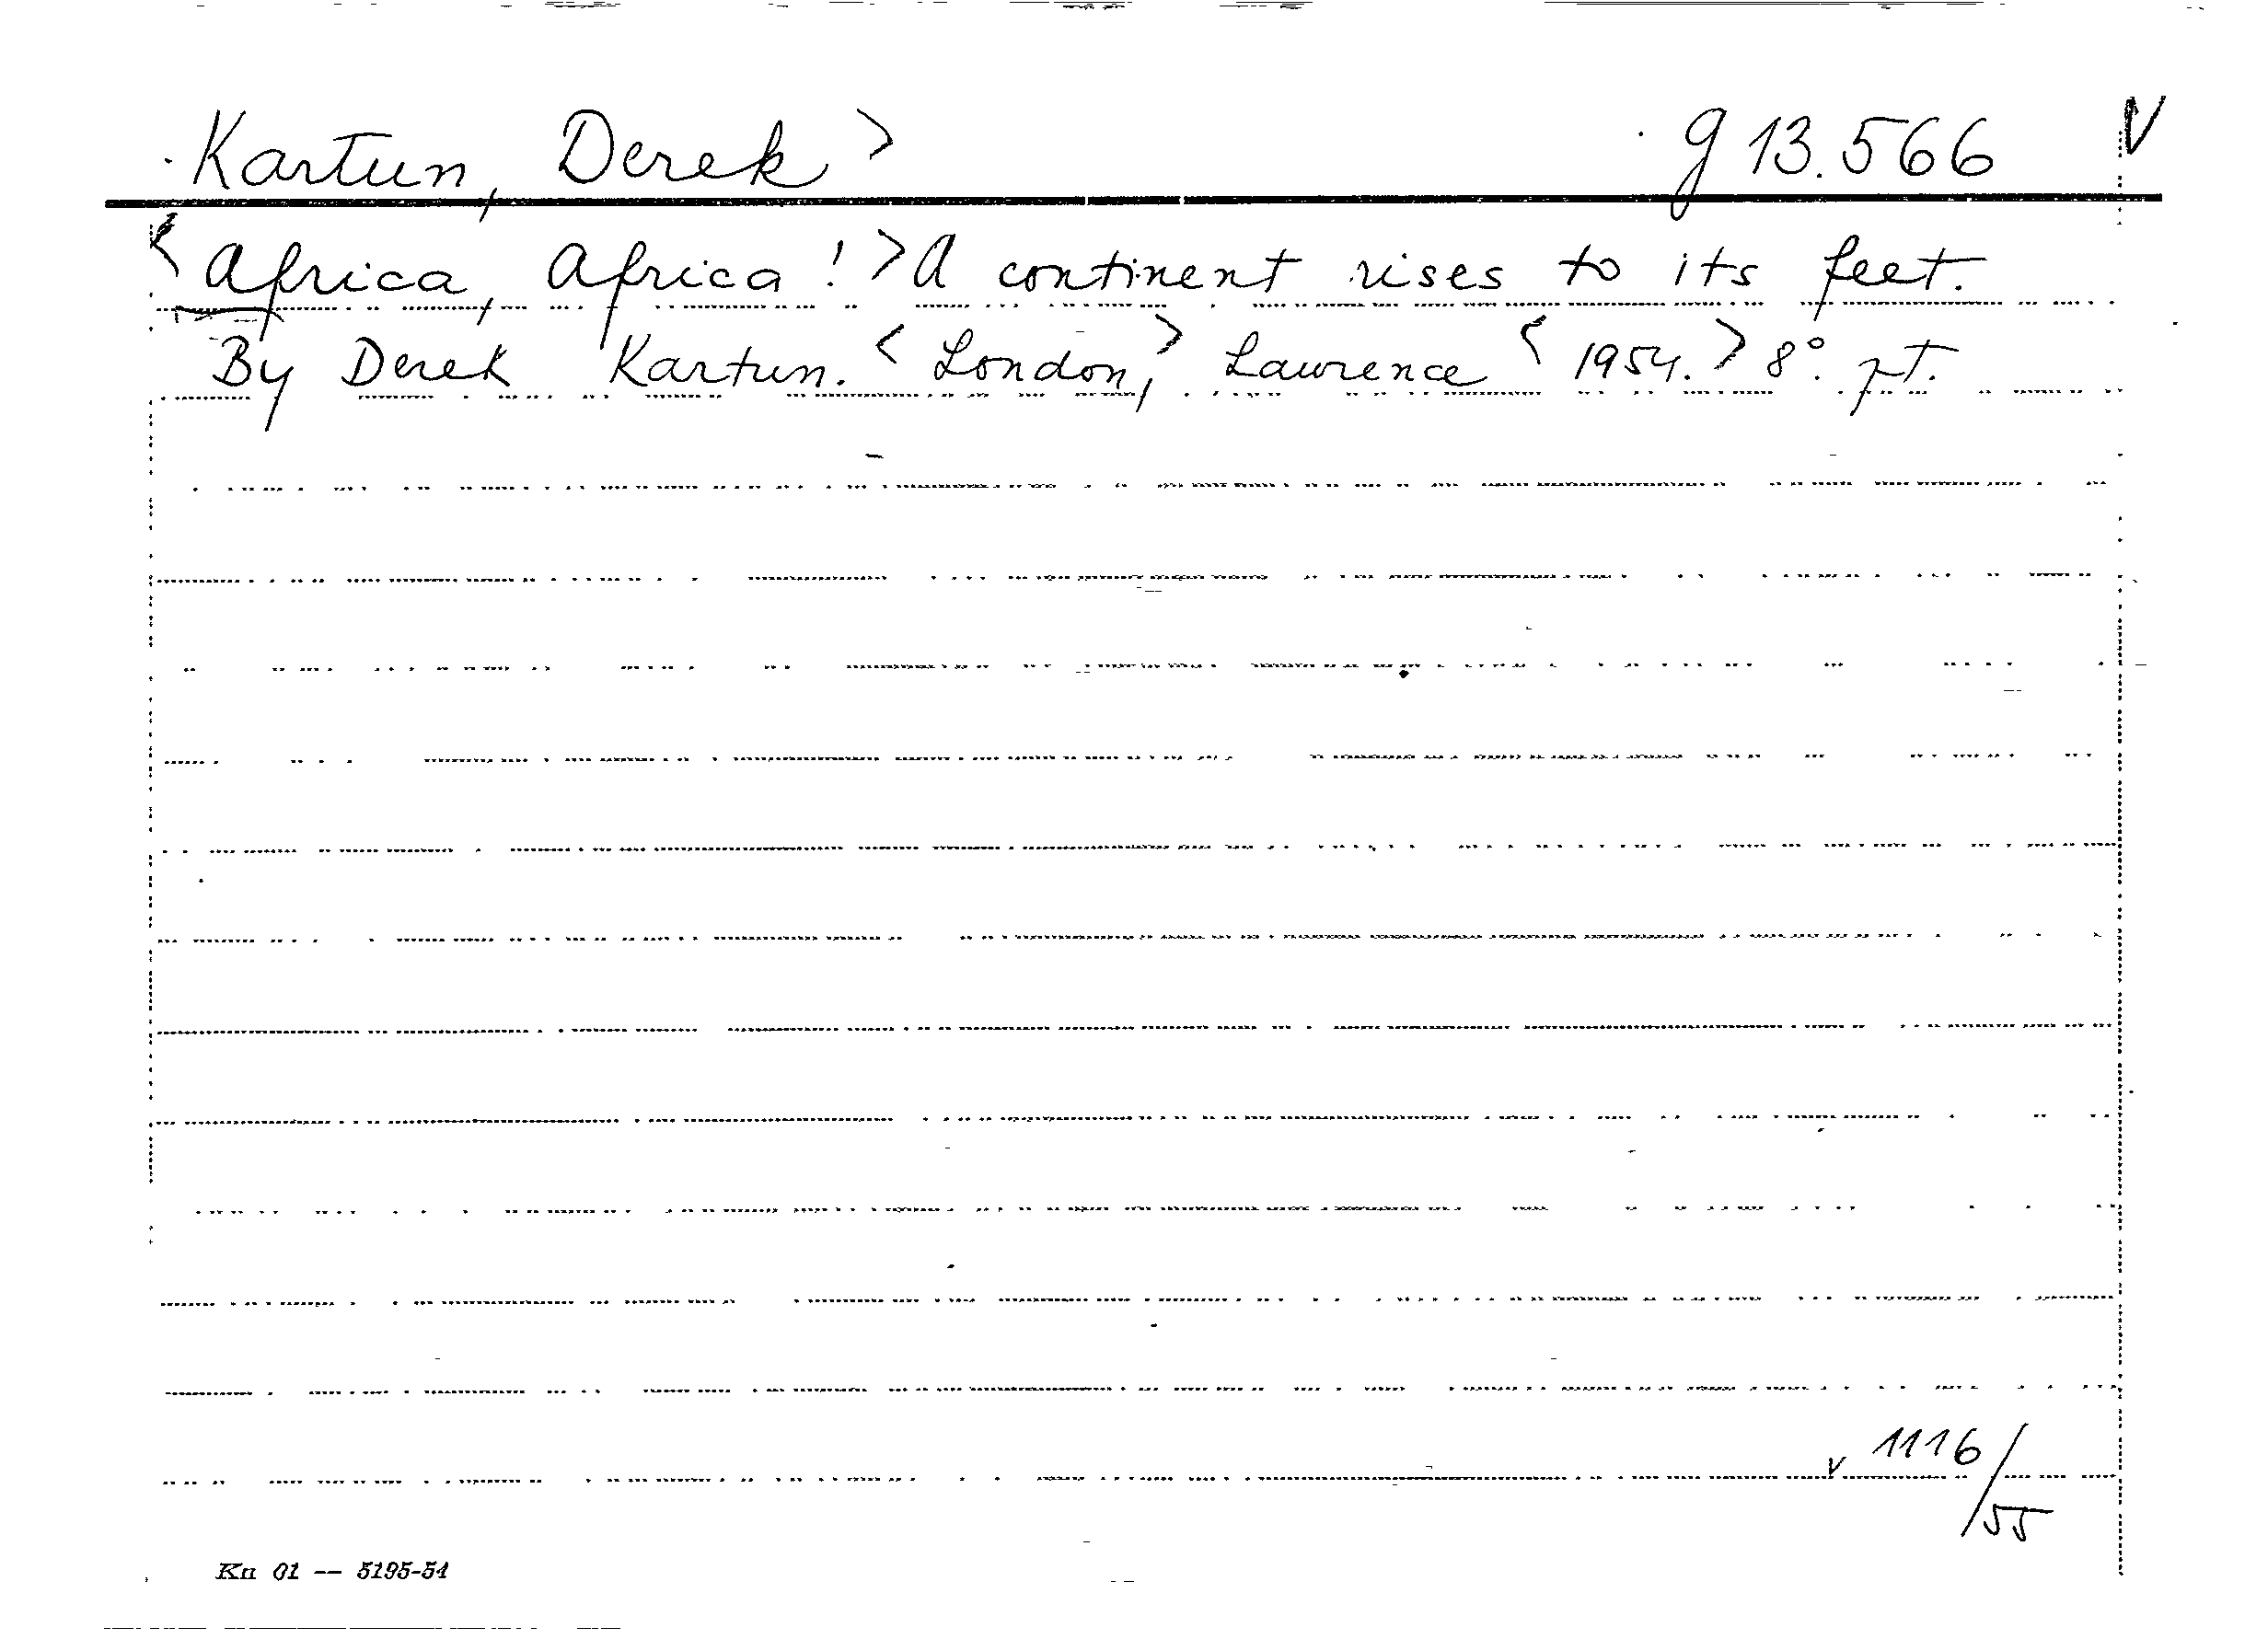 Kartun, Derek > g 13.566 V
< Africa, Africa ! > A continent rises to its feet.
By Derek Kartun. < London, > Lawrence < 1954. > 8°. pt.
v 1116/55
Kn 01 -- 5195-54